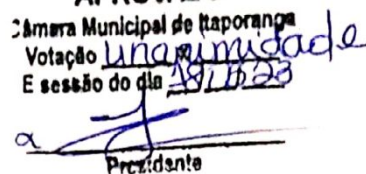 Câmara Municipal de Itaporanga
Votação unanimidade
E sessão do dia
Prezidante